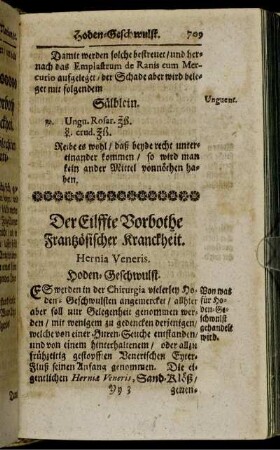 Hoden-Geschwulst. 709
Damit werden solche bestreuet/und her-
nach das Emplastrum de Ranis cum Mer-
curio aufgeleget/ der Schade aber wird bele-
get mit folgendem
Sälblein. Unguent.
Ungu. Rosar. ℥ß.
☿. crud. ʒß.
Reibe es wohl/ daß beyde recht unter-
einander kommen/ so wird man
kein ander Mittel vonnöhen ha-
ben.
Der Eilffte Vorbothe
Frantzösischer Kranckheit.
Hernia Veneris.
Hoden-Geschwulst.
ES werden in der Chirurgia vielerley Ho-
den-Geschwulsten angemercket/ allhier
aber soll nur Gelegenheit genommen wer-
den/ mir wenigem zu gedencken derjenigen/
welche von einer Huren-Seuche entstanden
und von einem hinterhaltenem/ oder allzu
frühzeitig gestopfften Venerischen Eyter-
Fluß seinen Anfang genommen. Die ei-
gentlichen Hernia Veneris, Sand-Klöß/
Von was
für Ho-
den-Ge-
schwulst
gehandelt
wird.
Yy 3 genen-